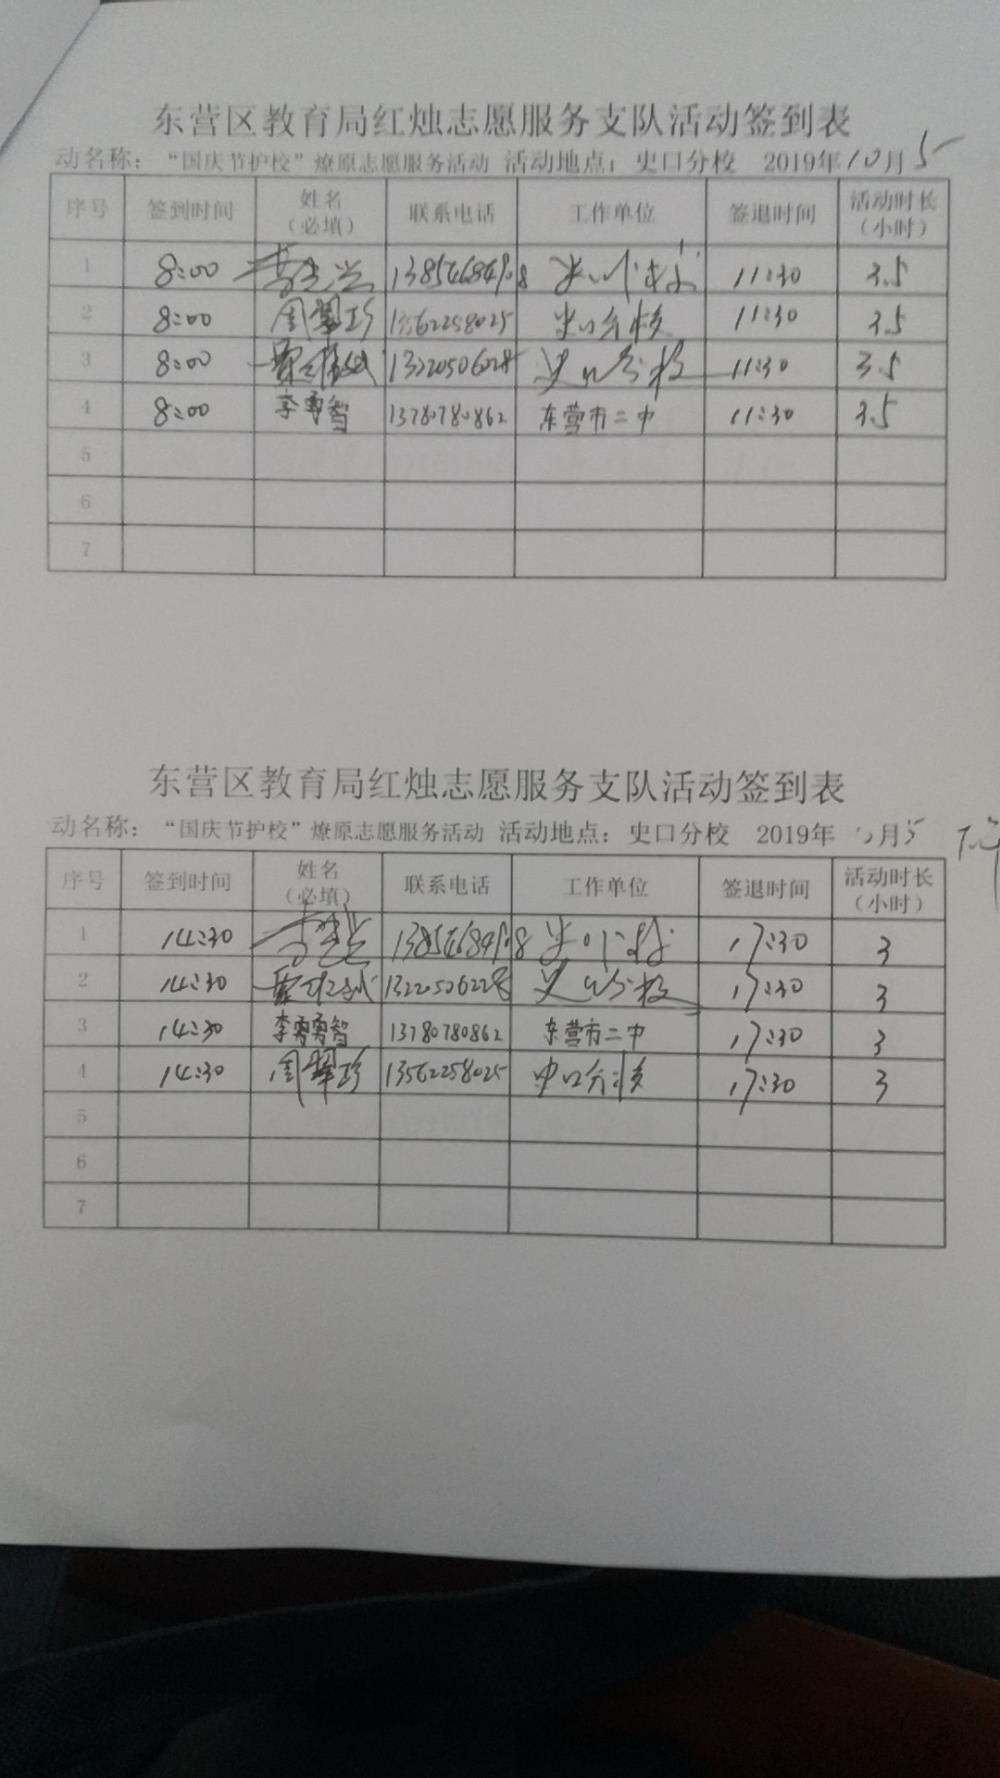 东营区教育局红烛志愿服务支队活动签到表
动名称：“国庆节护校”燎原志愿服务活动 活动地点：史口分校 2019年10月5
序号 签到时间 姓名（必填） 联系电话 工作单位 签退时间 活动时长（小时）
1 8:00 11:30 3.5
2 8:00 周翠珍 13562258025 史口分校 11:30 3.5
3 8:00 史口分校 11:30 3.5
4 8:00 李勇智 13780780862 东营市二中 11:30 3.5
5
6
7
东营区教育局红烛志愿服务支队活动签到表
动名称：“国庆节护校”燎原志愿服务活动 活动地点：史口分校 2019年 月5
序号 签到时间 姓名（必填） 联系电话 工作单位 签退时间 活动时长（小时）
1 14:30 17:30 3
2 14:30 史口分校 17:30 3
3 14:30 李勇智 13780780862 东营市二中 17:30 3
4 14:30 周翠珍 13562258025 史口分校 17:30 3
5
6
7